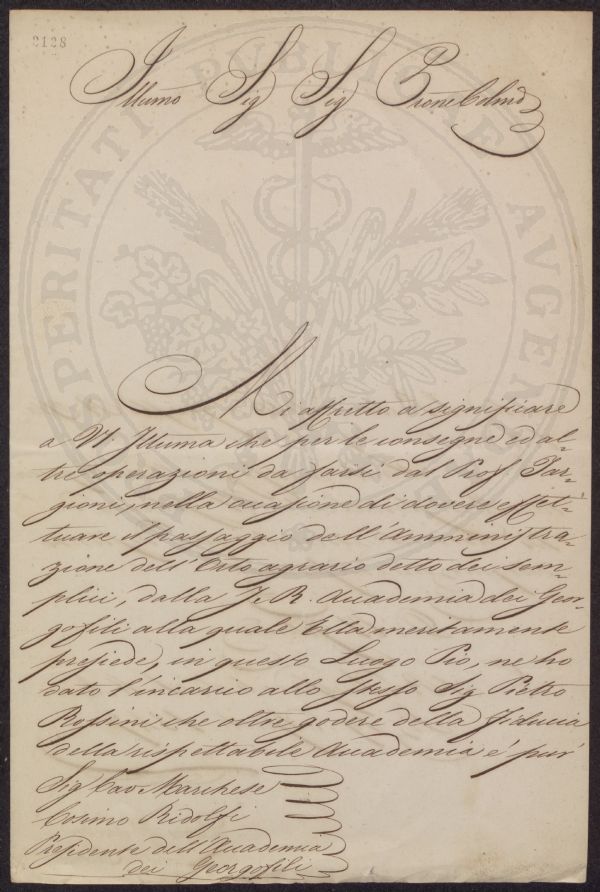 2128
Illumo Sig Sig Prone Colmo
Mi affretto a significare
a VS. Illuma che per le consegne ed al-
tre operazioni da farsi dal Prof. Tar-
gioni, nella occasione di dovere effet-
tuare il passaggio dell'Amministra-
zione dell'Orto agrario detto dei sem-
plici, dalla I. R. Accademia dei Geor-
gofili alla quale Ella meritamente
presiede, in questo Luogo Pio, ne ho
dato l'incarico allo stesso Sig Pietro
Rossini che oltre godere della fiducia
della rispettabile Accademia é pur
Sig Cav Marchese
Cosimo Ridolfi
Presidente dell'Accademia
dei Georgofili
PROSPERITATI PUBLICAE AVGENDAE